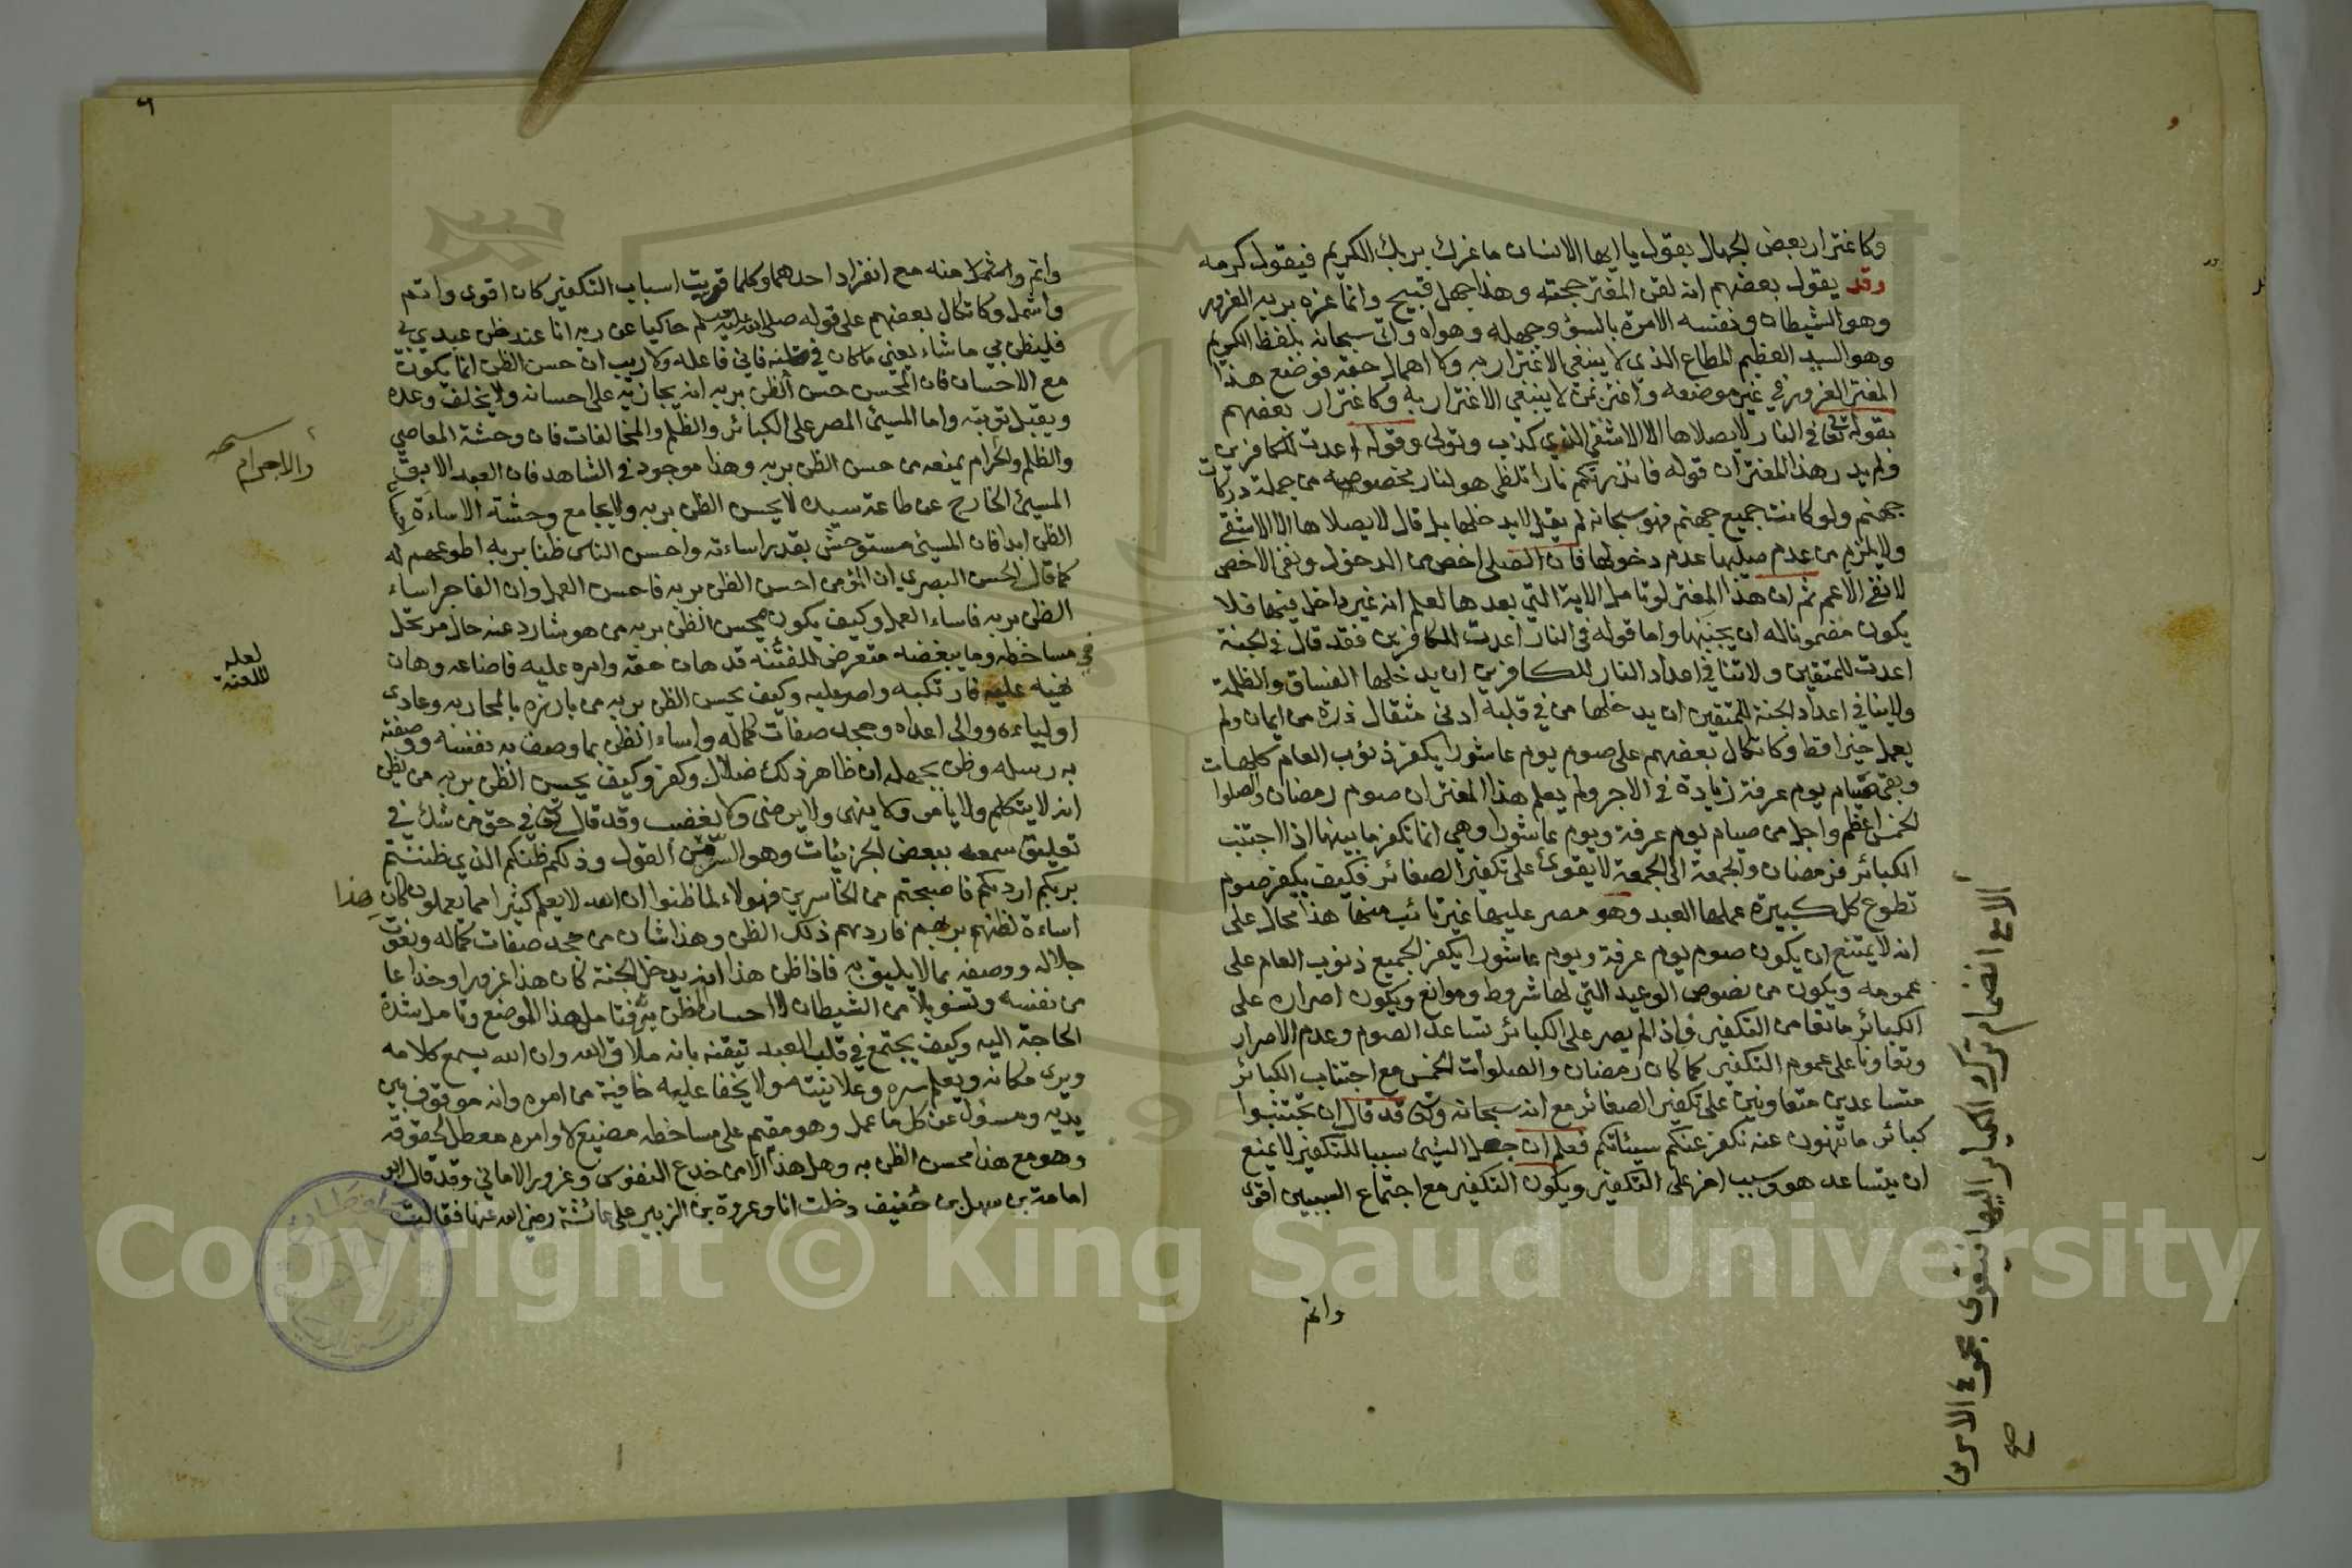 وكاغترار بعض الجهال بقوله يا ايها الانسان ما غرك بربك الكريم فيقول كرمه
وقد يقول بعضهم انه لقن المغتر حجته وهذا جهل قبيح وانما غره بربه الغرور
وهو الشيطان ونفسه الامارة بالسؤ وجهله وهواه واتى سبحانه بلفظ الكريم
وهو السيد العظيم المطاع الذي لا ينبغي الاغترار به ولا اهمال حقه فوضع هذا
المغتر الغرور في غير موضعه واغتر بمن لا ينبغي الاغترار به وكاغترار بعضهم
بقوله تعالى في النار لا يصلاها الا الاشقى الذي كذب وتولى وقوله اعدت للكافرين
ولم يدر هذا المغتر ان قوله فانذرتكم نارا تلظى هو لنار مخصوصه من جملة دركات
جهنم ولو كانت جميع جهنم فهو سبحانه لم يقل لا يدخلها بل قال لا يصلاها الا الاشقى
ولا يلزم من عدم صليها عدم دخولها فان الصلي اخص من الدخول ونفي الاخص
لا نفي الاعم ثم ان هذا المغتر لو تامل الاية التي بعدها لعلم انه غير داخل فيها فلا
يكون مضمونا له ان يجنبها واما قوله في النار اعدت للكافرين فقد قال في الجنة
اعدت للمتقين ولا تنافي اعداد النار للكافرين ان يدخلها الفساق والظلمة
ولا ينافي اعداد الجنة للمتقين ان يدخلها من في قلبه ادنى مثقال ذرة من ايمان ولم
يعمل خيرا قط وكاتكال بعضهم على صوم يوم عاشورا يكفر ذنوب العام كلها حتى
وبقى صيام يوم عرفة زيادة في الاجر ولم يعلم هذا المغتر ان صوم رمضان والصلوا
الخمس اعظم واجل من صيام يوم عرفة ويوم عاشورا وهي انما تكفر ما بينها اذا اجتنب
الكبائر فرمضان والجمعة الى الجمعة لا يقوى على تكفير الصغائر فكيف يكفر صوم
تطوع كل كبيرة عملها العبد وهو مصر عليها غير تائب منها هذا محال على
انه لا يمتنع ان يكون صوم يوم عرفة ويوم عاشورا يكفر لجميع ذنوب العام على
عمومه ويكون من نصوص الوعيد التي لها شروط وموانع ويكون اصراره على
الكبائر مانعا من التكفير فاذا لم يصر على الكبائر تساعد الصوم وعدم الاصرار
وتعاونا على عموم التكفير كما كان رمضان والصلوات الخمس مع اجتناب الكبائر
متساعدين متعاونين على تكفير الصغائر مع انه سبحانه وتعالى قد قال ان تجتنبوا
كبائر ما تنهون عنه نكفر عنكم سيئاتكم فعلم ان جعل الشيئ سببا للتكفير لا يمنع
ان يتساعد هو وسبب اخر على التكفير ويكون التكفير مع اجتماع السببين اقوى
واتم
الا مع انضمام ترك الكبائر اليها فيقوى مجموع الامرين
صح
٦
واتم واشمل منه مع انفراد احدهما وكلما قويت اسباب التكفير كان اقوى واتم
واشمل وكاتكال بعضهم على قوله صلى الله عليه وسلم حاكيا عن ربه انا عند ظن عبدي بي
فليظن بي ما شاء يعني ما كان في ظنه فاني فاعله ولا ريب ان حسن الظن انما يكون
مع الاحسان فان المحسن حسن الظن بربه انه يجازيه على احسانه ولا يخلف وعده
ويقبل توبته واما المسيئ المصر على الكبائر والظلم والمخالفات فان وحشة المعاصي
والظلم والحرام يمنعه من حسن الظن بربه وهذا موجود في الشاهد فان العبد الابق
المسيئ الخارج عن طاعة سيده لا يحسن الظن بربه ولا يجامع وحشة الاساءة
الظن ابدا فان المسيئ مستوحش بقدر اساءته واحسن الناس ظنا بربه اطوعهم له
كما قال الحسن البصري ان المؤمن احسن الظن بربه فاحسن العمل وان الفاجر اساء
الظن بربه فاساء العمل وكيف يكون يحسن الظن بربه من هو شارد عنه حال مرتحل
في مساخطه وما يبغضه متعرض للفتنه قد هان حقه وامره عليه فاضاعه وهان
نهيه عليه فارتكبه واصر عليه وكيف يحسن الظن بربه من بارزه بالمحاربه وعادى
اولياءه ووالى اعداه وجحد صفات كماله واساء الظن بما وصف به نفسه ووصفته
به رسله وظن بجهله ان ظاهر ذلك ضلال وكفر وكيف يحسن الظن بربه من يظن
انه لا يتكلم ولا يامر ولا ينهى ولا يرضى ولا يغضب وقد قال تعالى في حق من شك في
تعليق سمعه ببعض الجزئيات وهو السر من القول وذلكم ظنكم الذي ظننتم
بربكم ارداكم فاصبحتم من الخاسرين فهولاء لما ظنوا ان الله لا يعلم كثيرا مما يعملون كان هذا
اساءة لظنهم بربهم فارداهم ذلك الظن وهذا شان من جحد صفات كماله ونعوت
جلاله ووصفه بما لا يليق به فاذا ظن هذا انه يدخل الجنة كان هذا غرورا وخداعا
من نفسه وتسويلا من الشيطان لا احسان ظن بربه فتامل هذا الموضع وتامل شدة
الحاجة اليه وكيف يجتمع في قلب العبد تيقنه بانه ملاق الله وان الله يسمع كلامه
ويرى مكانه ويعلم سره وعلانيته ولا يخفا عليه خافية من امره وانه موقوف بين
يديه ومسؤل عن كل ما عمل وهو مقيم على مساخطه مضيع لاوامره معطل لحقوقه
وهو مع هذا محسن الظن به وهل هذا الا من خدع النفوس وغرور الاماني وقد قال ابو
امامة بن سهل بن حنيف دخلت انا وعروة بن الزبير على عائشة رضي الله عنها فقالت
والاجرام
لعله
للعنة
Copyright © King Saud University